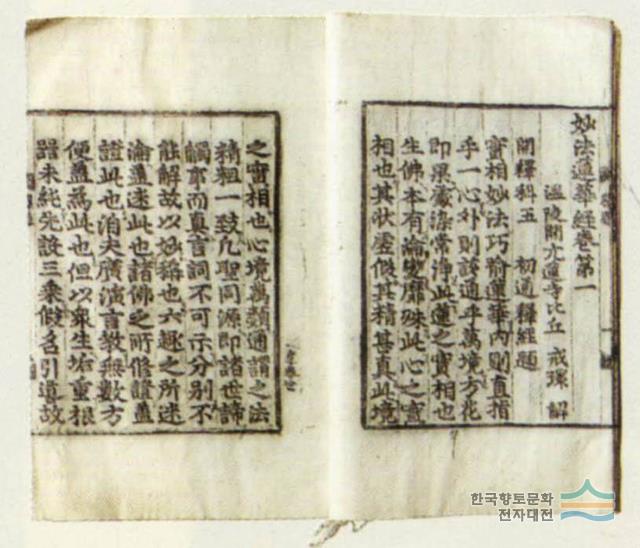 妙法蓮華經卷第一
溫陵開元蓮寺比丘 戒環 解
開釋科五 初通釋經題
實相妙法巧喻蓮華內則直指
乎一心外則該通乎萬境方花
即果處染常淨此蓮之實相也
生佛本有淪變靡殊此心之實
相也其狀虛假其精甚真此境
之實相也心境萬類通謂之法
精粗一致凡聖同源即諸世諦
觸事而真言詞不可示分別不
能解故以妙稱也六趣之所迷
淪蓋迷此也諸佛之所修證蓋
證此也洎夫廣演言教無數方
便蓋爲此也但以衆生垢重根
器未純先設三乘假名引導故
한국향토문화
전자대전